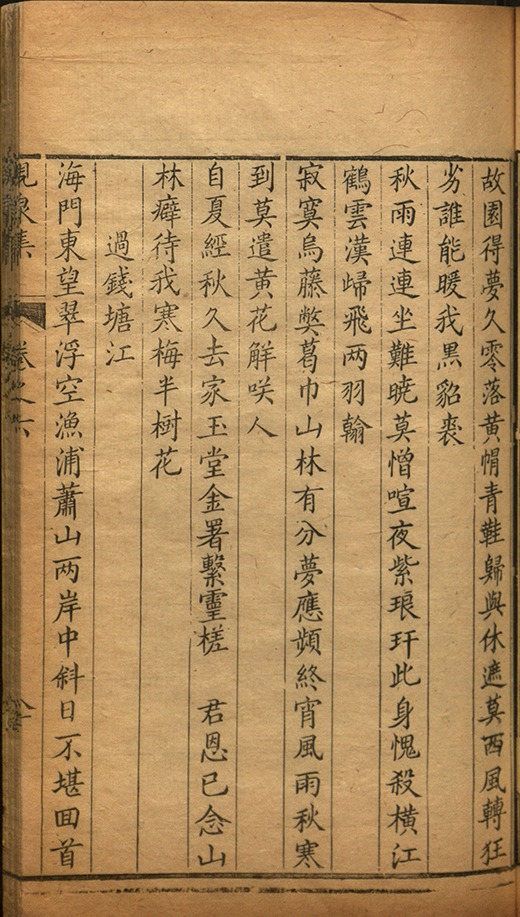 故園得夢久零落黃帽青鞋歸與休遮莫西風轉狂
劣誰能暖我黑貂裘
秋雨連連坐難曉莫憎喧夜紫琅玕此身愧殺橫江
鶴雲漢歸飛两羽翰
寂寞烏藤獘葛巾山林有分夢應頻終宵風雨秋寒
到莫遣黃花解咲人
自夏經秋久去家玉堂金署繫靈槎　君恩已念山
林癖待我寒梅半樹花
過錢塘江
海門東望翠浮空漁浦蕭山两岸中斜日不堪回首
峴泉集　卷之六